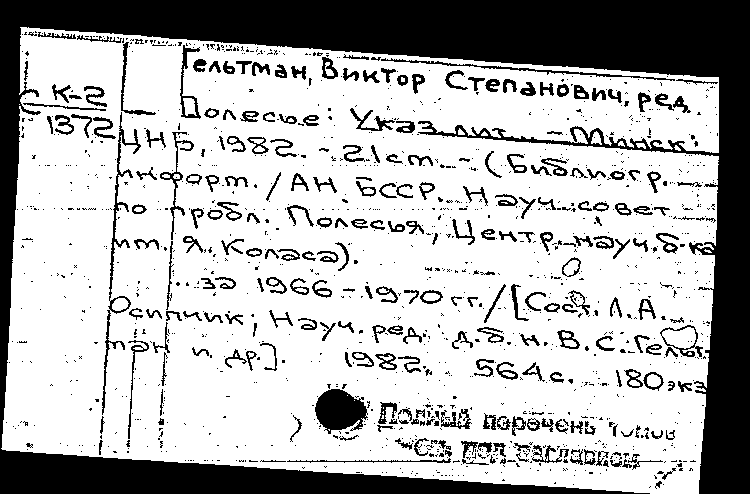 Гельтман, Виктор Степанович, ред.
К-2
1372
Полесье: Указ. лит. – Минск:
ЦНБ, 1982. – 21 см. – (Библиогр.
информ. / АН БССР. Науч. совет
по пробл. Полесья, Центр. науч. б-ка
им. Я. Коласа).
... за 1966–1970 гг. / [Сост. Л. А.
Осипчик; Науч. ред. д.б.н. В. С. Гельт-
ман и др.]. 1982. 564 с. 180 экз
Полный перечень томов
См. под заглавием